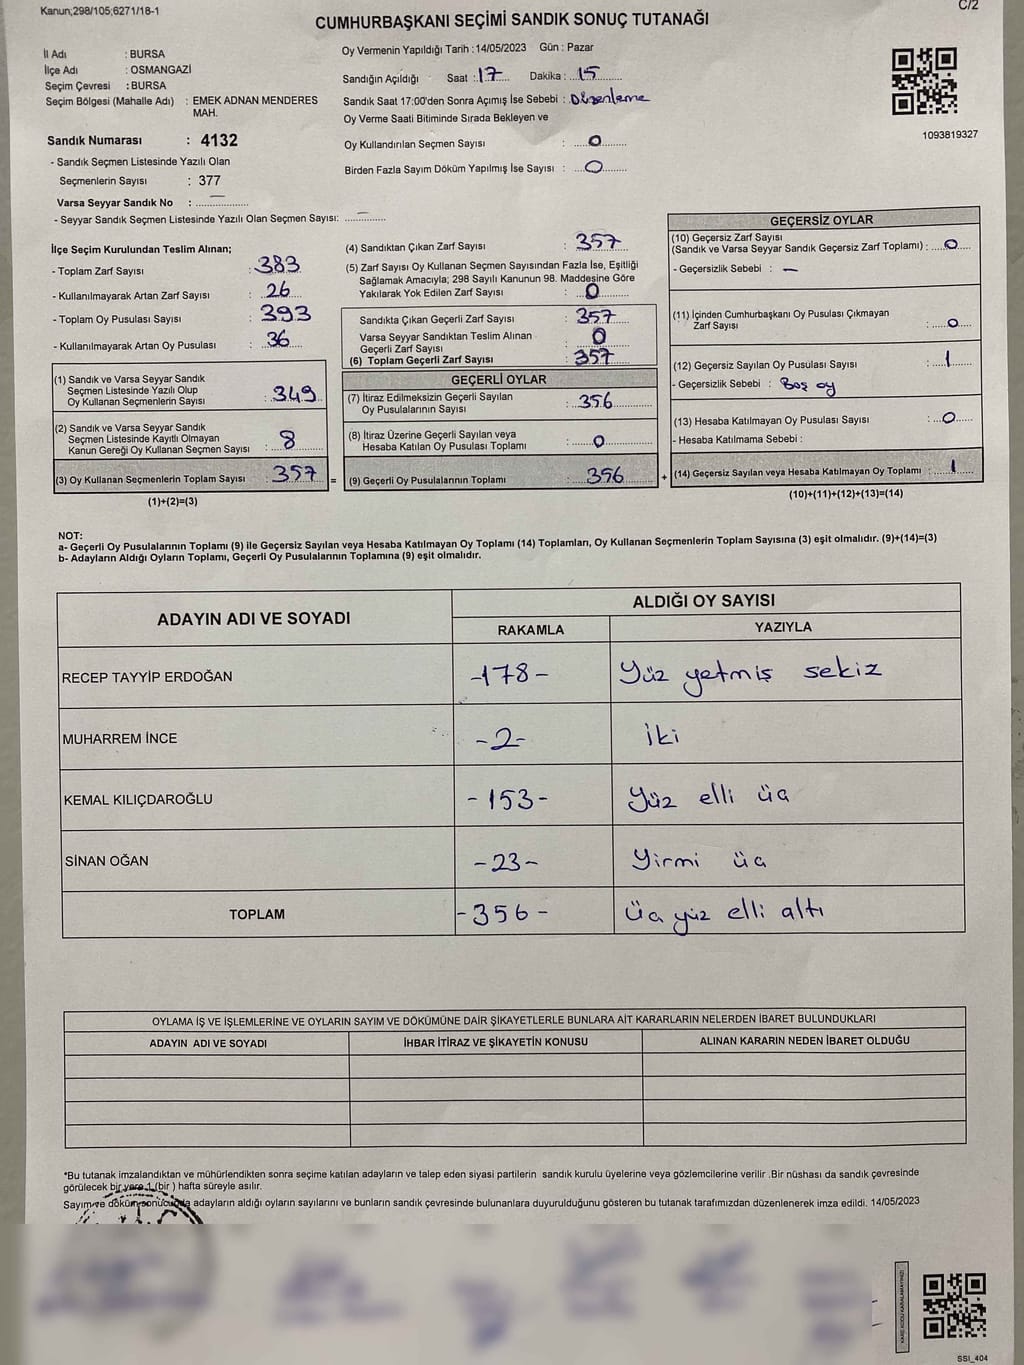 Kanun;298/105;6271/18-1
C/2
CUMHURBAŞKANI SEÇİMİ SANDIK SONUÇ TUTANAĞI
İl Adı : BURSA
İlçe Adı : OSMANGAZİ
Seçim Çevresi : BURSA
Seçim Bölgesi (Mahalle Adı) : EMEK ADNAN MENDERES
MAH.
Sandık Numarası : 4132
- Sandık Seçmen Listesinde Yazılı Olan
Seçmenlerin Sayısı : 377
Varsa Seyyar Sandık No : —
- Seyyar Sandık Seçmen Listesinde Yazılı Olan Seçmen Sayısı: —
Oy Vermenin Yapıldığı Tarih : 14/05/2023 Gün : Pazar
Sandığın Açıldığı Saat : 17 Dakika : 15
Sandık Saat 17:00'den Sonra Açımış İse Sebebi : Düzenleme
Oy Verme Saati Bitiminde Sırada Bekleyen ve
Oy Kullandırılan Seçmen Sayısı : 0
Birden Fazla Sayım Döküm Yapılmış İse Sayısı : 0
1093819327
İlçe Seçim Kurulundan Teslim Alınan;
- Toplam Zarf Sayısı : 383
- Kullanılmayarak Artan Zarf Sayısı : 26
- Toplam Oy Pusulası Sayısı : 393
- Kullanılmayarak Artan Oy Pusulası : 36
(1) Sandık ve Varsa Seyyar Sandık
Seçmen Listesinde Yazılı Olup
Oy Kullanan Seçmenlerin Sayısı : 349
(2) Sandık ve Varsa Seyyar Sandık
Seçmen Listesinde Kayıtlı Olmayan
Kanun Gereği Oy Kullanan Seçmen Sayısı : 8
(3) Oy Kullanan Seçmenlerin Toplam Sayısı : 357 =
(1)+(2)=(3)
(4) Sandıktan Çıkan Zarf Sayısı : 357
(5) Zarf Sayısı Oy Kullanan Seçmen Sayısından Fazla İse, Eşitliği
Sağlamak Amacıyla; 298 Sayılı Kanunun 98. Maddesine Göre
Yakılarak Yok Edilen Zarf Sayısı : 0
Sandıkta Çıkan Geçerli Zarf Sayısı : 357
Varsa Seyyar Sandıktan Teslim Alınan : 0
Geçerli Zarf Sayısı
(6) Toplam Geçerli Zarf Sayısı : 357
GEÇERLİ OYLAR
(7) İtiraz Edilmeksizin Geçerli Sayılan
Oy Pusulalarının Sayısı : 356
(8) İtiraz Üzerine Geçerli Sayılan veya
Hesaba Katılan Oy Pusulası Toplamı : 0
(9) Geçerli Oy Pusulalarının Toplamı : 356 +
GEÇERSİZ OYLAR
(10) Geçersiz Zarf Sayısı
(Sandık ve Varsa Seyyar Sandık Geçersiz Zarf Toplamı) : 0
- Geçersizlik Sebebi : —
(11) İçinden Cumhurbaşkanı Oy Pusulası Çıkmayan
Zarf Sayısı : 0
(12) Geçersiz Sayılan Oy Pusulası Sayısı : 1
- Geçersizlik Sebebi : Boş oy
(13) Hesaba Katılmayan Oy Pusulası Sayısı : 0
- Hesaba Katılmama Sebebi :
(14) Geçersiz Sayılan veya Hesaba Katılmayan Oy Toplamı : 1
(10)+(11)+(12)+(13)=(14)
NOT:
a- Geçerli Oy Pusulalarının Toplamı (9) ile Geçersiz Sayılan veya Hesaba Katılmayan Oy Toplamı (14) Toplamları, Oy Kullanan Seçmenlerin Toplam Sayısına (3) eşit olmalıdır. (9)+(14)=(3)
b- Adayların Aldığı Oyların Toplamı, Geçerli Oy Pusulalarının Toplamına (9) eşit olmalıdır.
ADAYIN ADI VE SOYADI
ALDIĞI OY SAYISI
RAKAMLA YAZIYLA
RECEP TAYYİP ERDOĞAN -178- Yüz yetmiş sekiz
MUHARREM İNCE -2- İki
KEMAL KILIÇDAROĞLU -153- Yüz elli üç
SİNAN OĞAN -23- Yirmi üç
TOPLAM -356- Üç yüz elli altı
OYLAMA İŞ VE İŞLEMLERİNE VE OYLARIN SAYIM VE DÖKÜMÜNE DAİR ŞİKAYETLERLE BUNLARA AİT KARARLARIN NELERDEN İBARET BULUNDUKLARI
ADAYIN ADI VE SOYADI İHBAR İTİRAZ VE ŞİKAYETİN KONUSU ALINAN KARARIN NEDEN İBARET OLDUĞU
*Bu tutanak imzalandıktan ve mühürlendikten sonra seçime katılan adayların ve talep eden siyasi partilerin sandık kurulu üyelerine veya gözlemcilerine verilir .Bir nüshası da sandık çevresinde
görülecek bir yere 1 (bir ) hafta süreyle asılır.
Sayım ve döküm sonucunda adayların aldığı oyların sayılarını ve bunların sandık çevresinde bulunanlara duyurulduğunu gösteren bu tutanak tarafımızdan düzenlenerek imza edildi. 14/05/2023
SSI_404